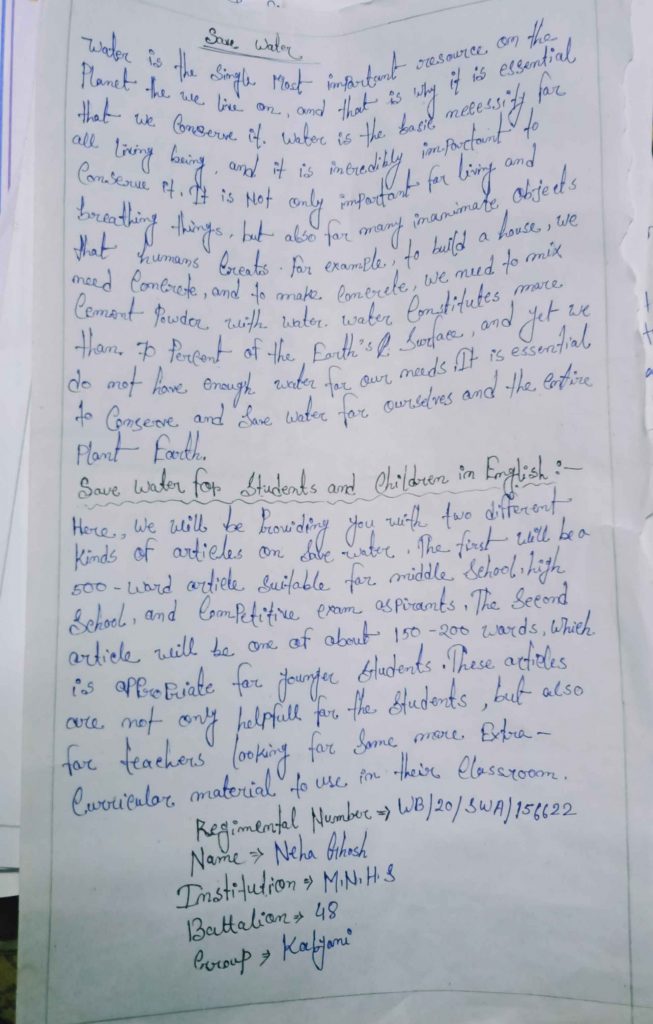 Save Water
Water is the Single Most important resource on the
Planet the we live on, and that is why it is essential
that we Conserve it. Water is the basic necessity for
all living being, and it is incredibly important to
Conserve it. It is Not only important for living and
breathing things, but also for many inanimate objects
that humans Creats. For example, to build a house, we
need Concrete, and to make Concrete, we need to mix
Cement Powder with water. Water Constitutes more
than 70 Percent of the Earth's Surface, and yet we
do not have enough water for our needs. It is essential
to Conserve and Save water for ourselves and the entire
Plant Earth.
Save Water for Students and Children in English :-
Here, We will be Providing you with two different
Kinds of articles on Save water. The first will be a
500 - word article Suitable for middle School, high
School, and Competitive exam aspirants. The Second
article will be one of about 150 - 200 words, which
is appropriate for younger Students. These articles
are not only helpfull for the Students, but also
for teachers looking for Some more Extra -
Curricular material to use in their Classroom.
Regimental Number ⇒ WB/20/SWA/156622
Name ⇒ Neha Ghosh
Institution ⇒ M.N.H.S
Battalion ⇒ 48
Group ⇒